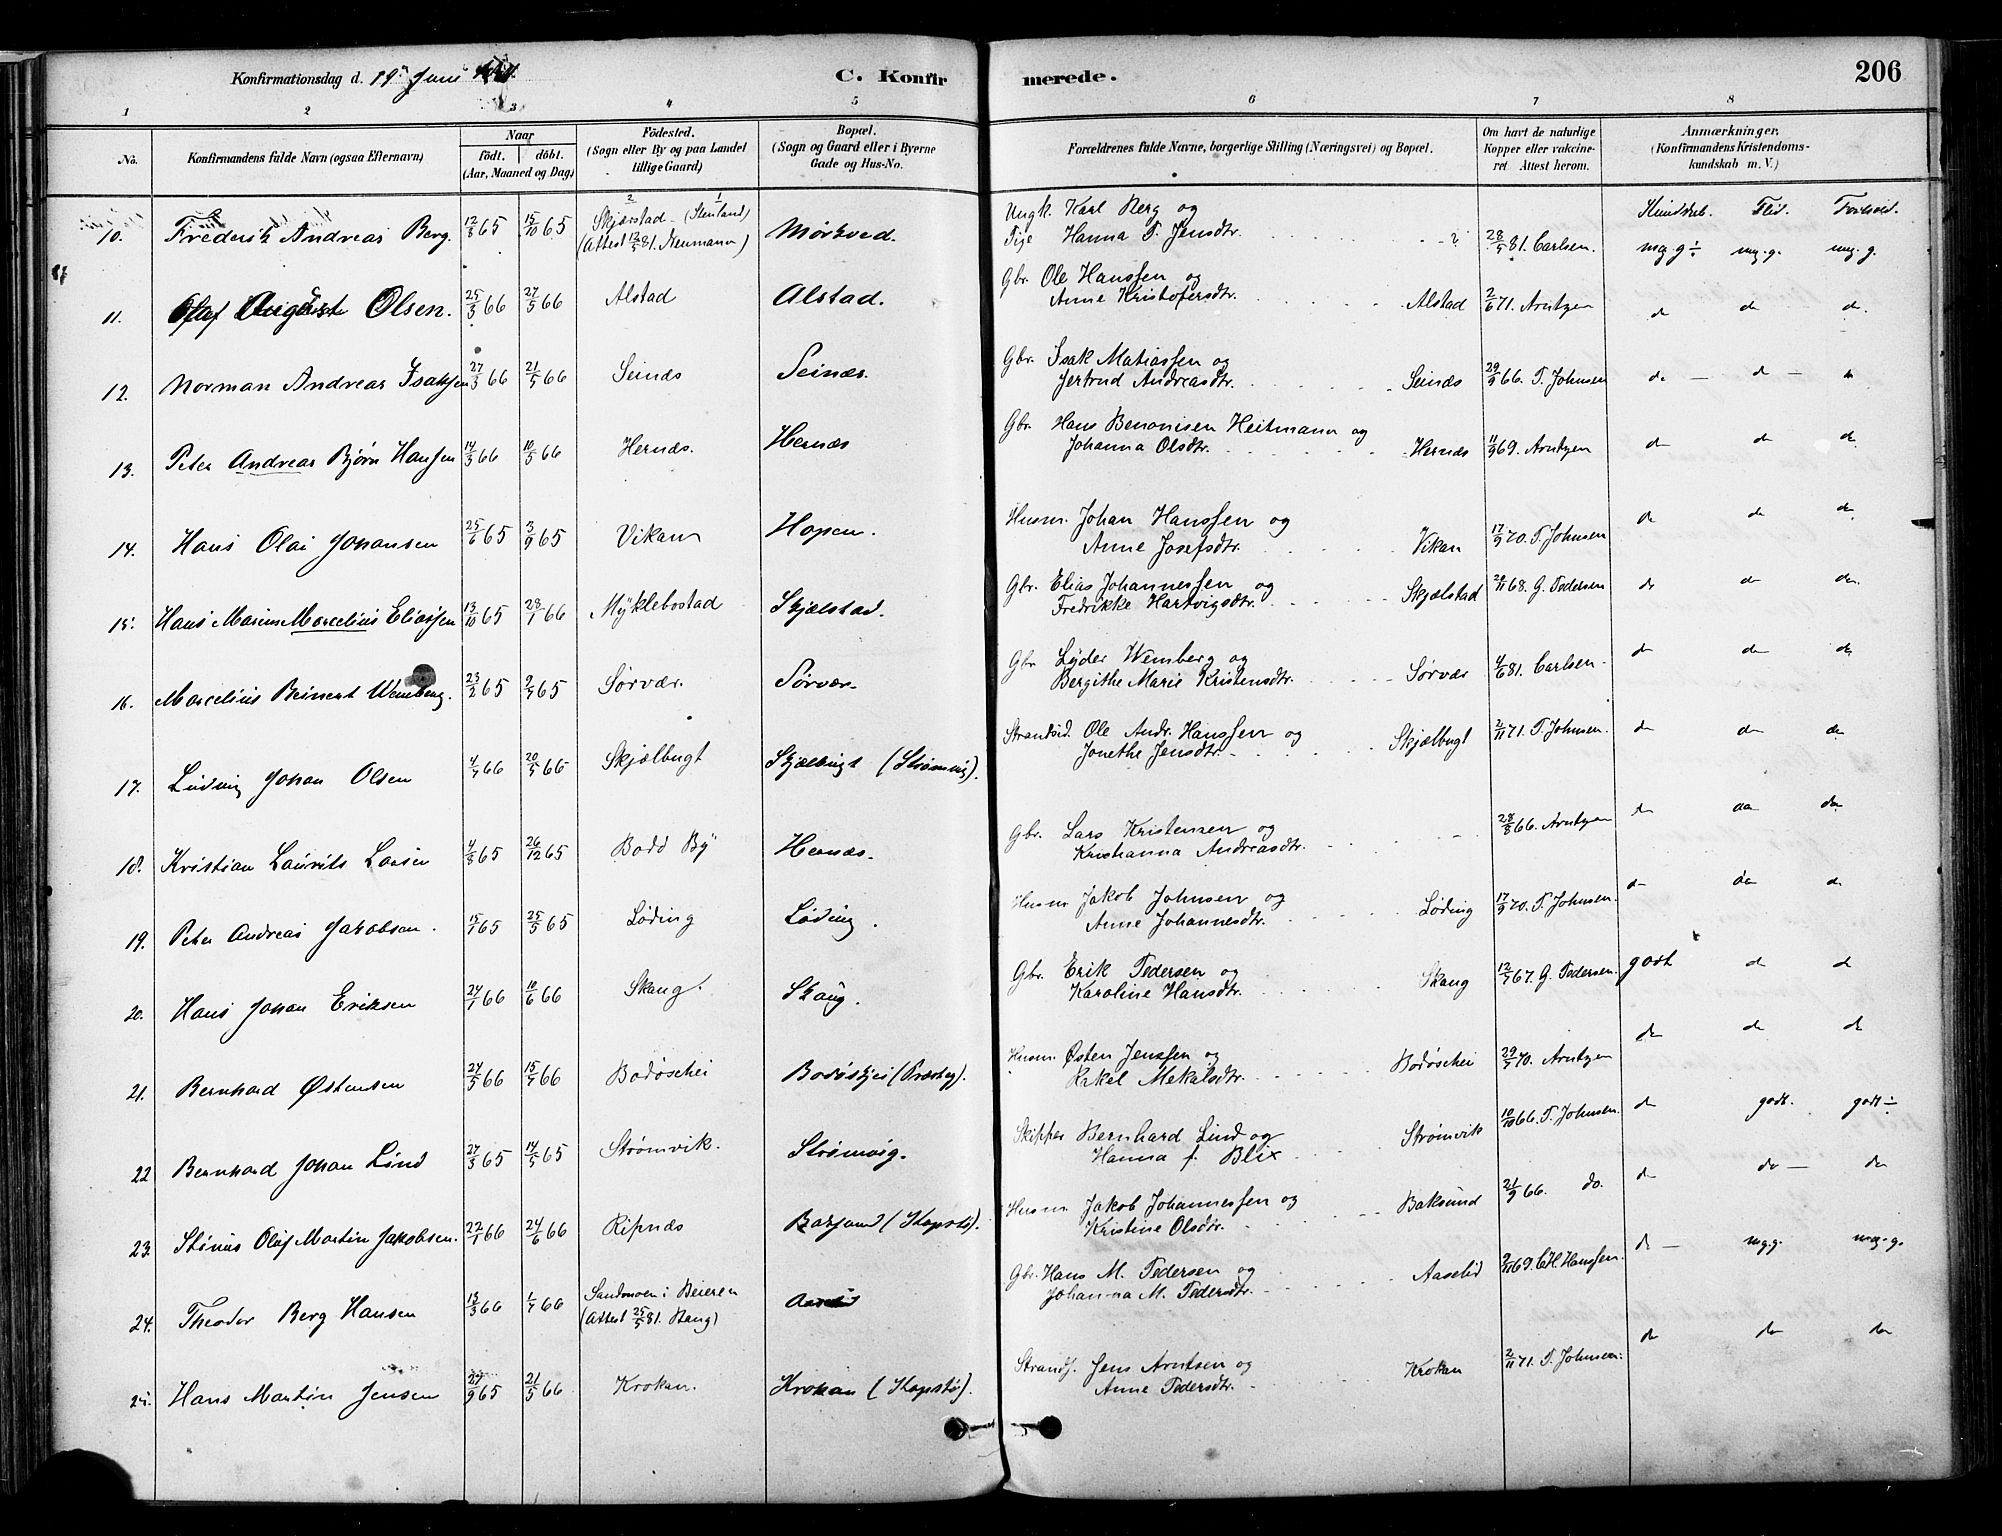 Konfirmationsdag d. 19 Juni
C. Konfirmerede.
206
1 2 3 4 5 6 7 8
No.
Konfirmandens fulde Navn (ogsaa Efternavn)
Naar
födt. döbt.
(Aar, Maaned og Dag)
Födested.
(Sogn eller By og paa Landet tillige Gaard)
Bopæl.
(Sogn og Gaard eller i Byerne Gade og Hus-No.
Forældrenes fulde Navne, borgerlige Stilling (Næringsvei) og Bopæl.
Om havt de naturlige Kopper eller vakcineret Attest herom.
Anmærkninger.
(Konfirmandens Kristendomskundskab m. V.)
Kundskab. Flid. Forhold.
10. Frederik Andreas Berg. 12/8 65 15/10 65 Skjerstad (Stenland) (Attest 12/5 81. Neumann) Mörkved. Ungk. Karl Berg og Pige Hanna P. Jensdtr. ? 28/5 81. Carlsen. mg. g÷ mg. g. mg. g.
11. Olaf August Olsen. 25/3 66 27/5 66 Alstad Alstad. Gbr. Ole Hanssen og Anne Kristofersdtr. Alstad 2/6 71. Arntzen do do do.
12. Norman Andreas Isaksen 27/3 66 21/5 66 Seines Seines. Gbr. Isak Matiassen og Jertrud Andreasdtr. Seines 29/9 66. P. Johnsen do — do —
13. Peter Andreas Bjørn Hansen 14/3 66 10/5 66 Hernes. Hernes Gbr. Hans Benonisen Heitmann og Johanna Olsdtr. Hernes 11/9 69. Arntzen do do do
14. Hans Olai Johansen 25/6 65 3/9 65 Vikan Hopen. Husm. Johan Hanssen og Anne Josefsdtr. Vikan 17/9 70. P. Johnsen do do do
15. Hans Marius Marcelius Eliassen 13/10 65 28/1 66 Myklebostad Skjelstad. Gbr. Elias Johannessen og Fredrikke Hartvigsdtr. Skjelstad 68. G. Pedersen do do do
16. Marcelius Beinert Wemberg. 23/2 65 2/7 65 Sørvær. Sørvær. Gbr Lyder Wemberg og Bergithe Marie Kristensdtr. Sørvær 4/6 81. Carlsen. do do do
17. Ludvig Johan Olsen 4/4 66 20/5 66 Skjælbugt Skjælbugt (Strømvig). Strandsid. Ole Andr. Hanssen og Jonethe Jensdtr. Skjælbugt 2/11 71. P. Johnsen. do do do
18. Kristian Laurits Larsen 4/8 65 26/12 65 Bodø By Hernes. Gbr. Lars Kristensen og Kristianna Andreasdtr. 28/8 66. Arntzen do do do
19. Peter Andreas Jakobsen. 15/1 65 25/5 65 Løding Løding. Husm Jakob Johnsen og Anne Johannesdtr. Løding 17/9 70. P. Johnsen. do do do
20. Hans Johan Eriksen 24/1 66 10/6 66 Skaug. Skaug. Gbr. Erik Pedersen og Karoline Hansdtr. Skaug 12/7 67. G. Pedersen. godt do do
21. Bernhard Østensen 24/5 66 15/7 66 Bodøschei Bodøskjei (Præsteg). Husm. Østen Jenssen og Rakel Mekalsdtr. Bodøschei 29/7 70. Arntzen do do do
22 Bernhard Johan Lind 27/3 65 14/5 65 Strømvik. Strømvig. Skipper Bernhard Lind og Hanna f. Blix Strømvik 10/10 66. P. Johnsen. do godt. godt÷
23. Stinius Olaf Martin Jakobsen. 22/1 66 24/6 66 Ripnes (Kopstø). Husm Jakob Johannessen og Kristine Olsdtr. Baksund 21/9 66. do. do do — do
24. Theodor Berg Hansen 13/3 66 1/7 66 Sandmoen i Beieren (Attest 25/5 81. Bang) Gbr. Hans M. Pedersen og Johanna M. Pedersdtr. Aaselid 2/11 69. C. H. Hanssen. do — mg.g. mg. g.
25. Hans Martin Jensen 9 65 21/5 66 Krokan. Krokan (Kopstø). Strands. Jens Arntsen og Anne Pedersdtr. Krokan 2/11 71. P. Johnsen. do do do